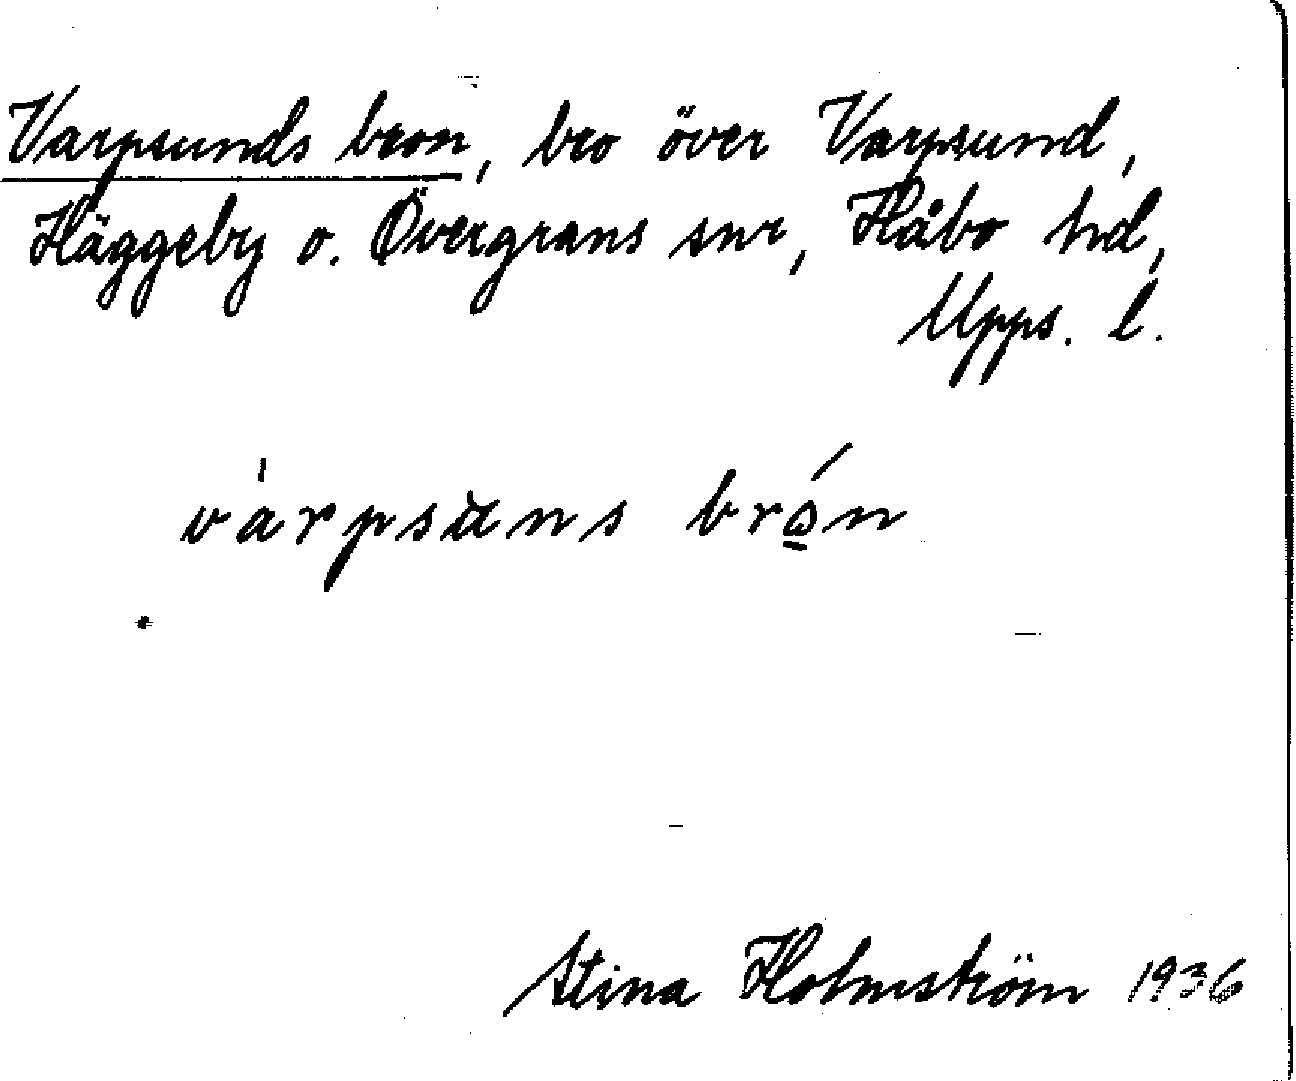 Varpsunds bron, bro över Varpsund,
Häggeby o. Övergrans snr, Håbo hd,
Upps. l.
várpsuns brón
Stina Holmström 1936